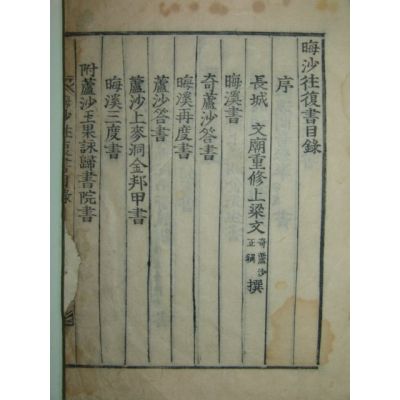 晦沙往復書目錄
序
長城 文廟重修上梁文 奇蘆沙正鎭 撰
晦溪書
奇蘆沙答書
晦溪再度書
蘆沙答書
蘆沙上麥洞金邦甲書
晦溪三度書
附蘆沙玉果詠歸書院書